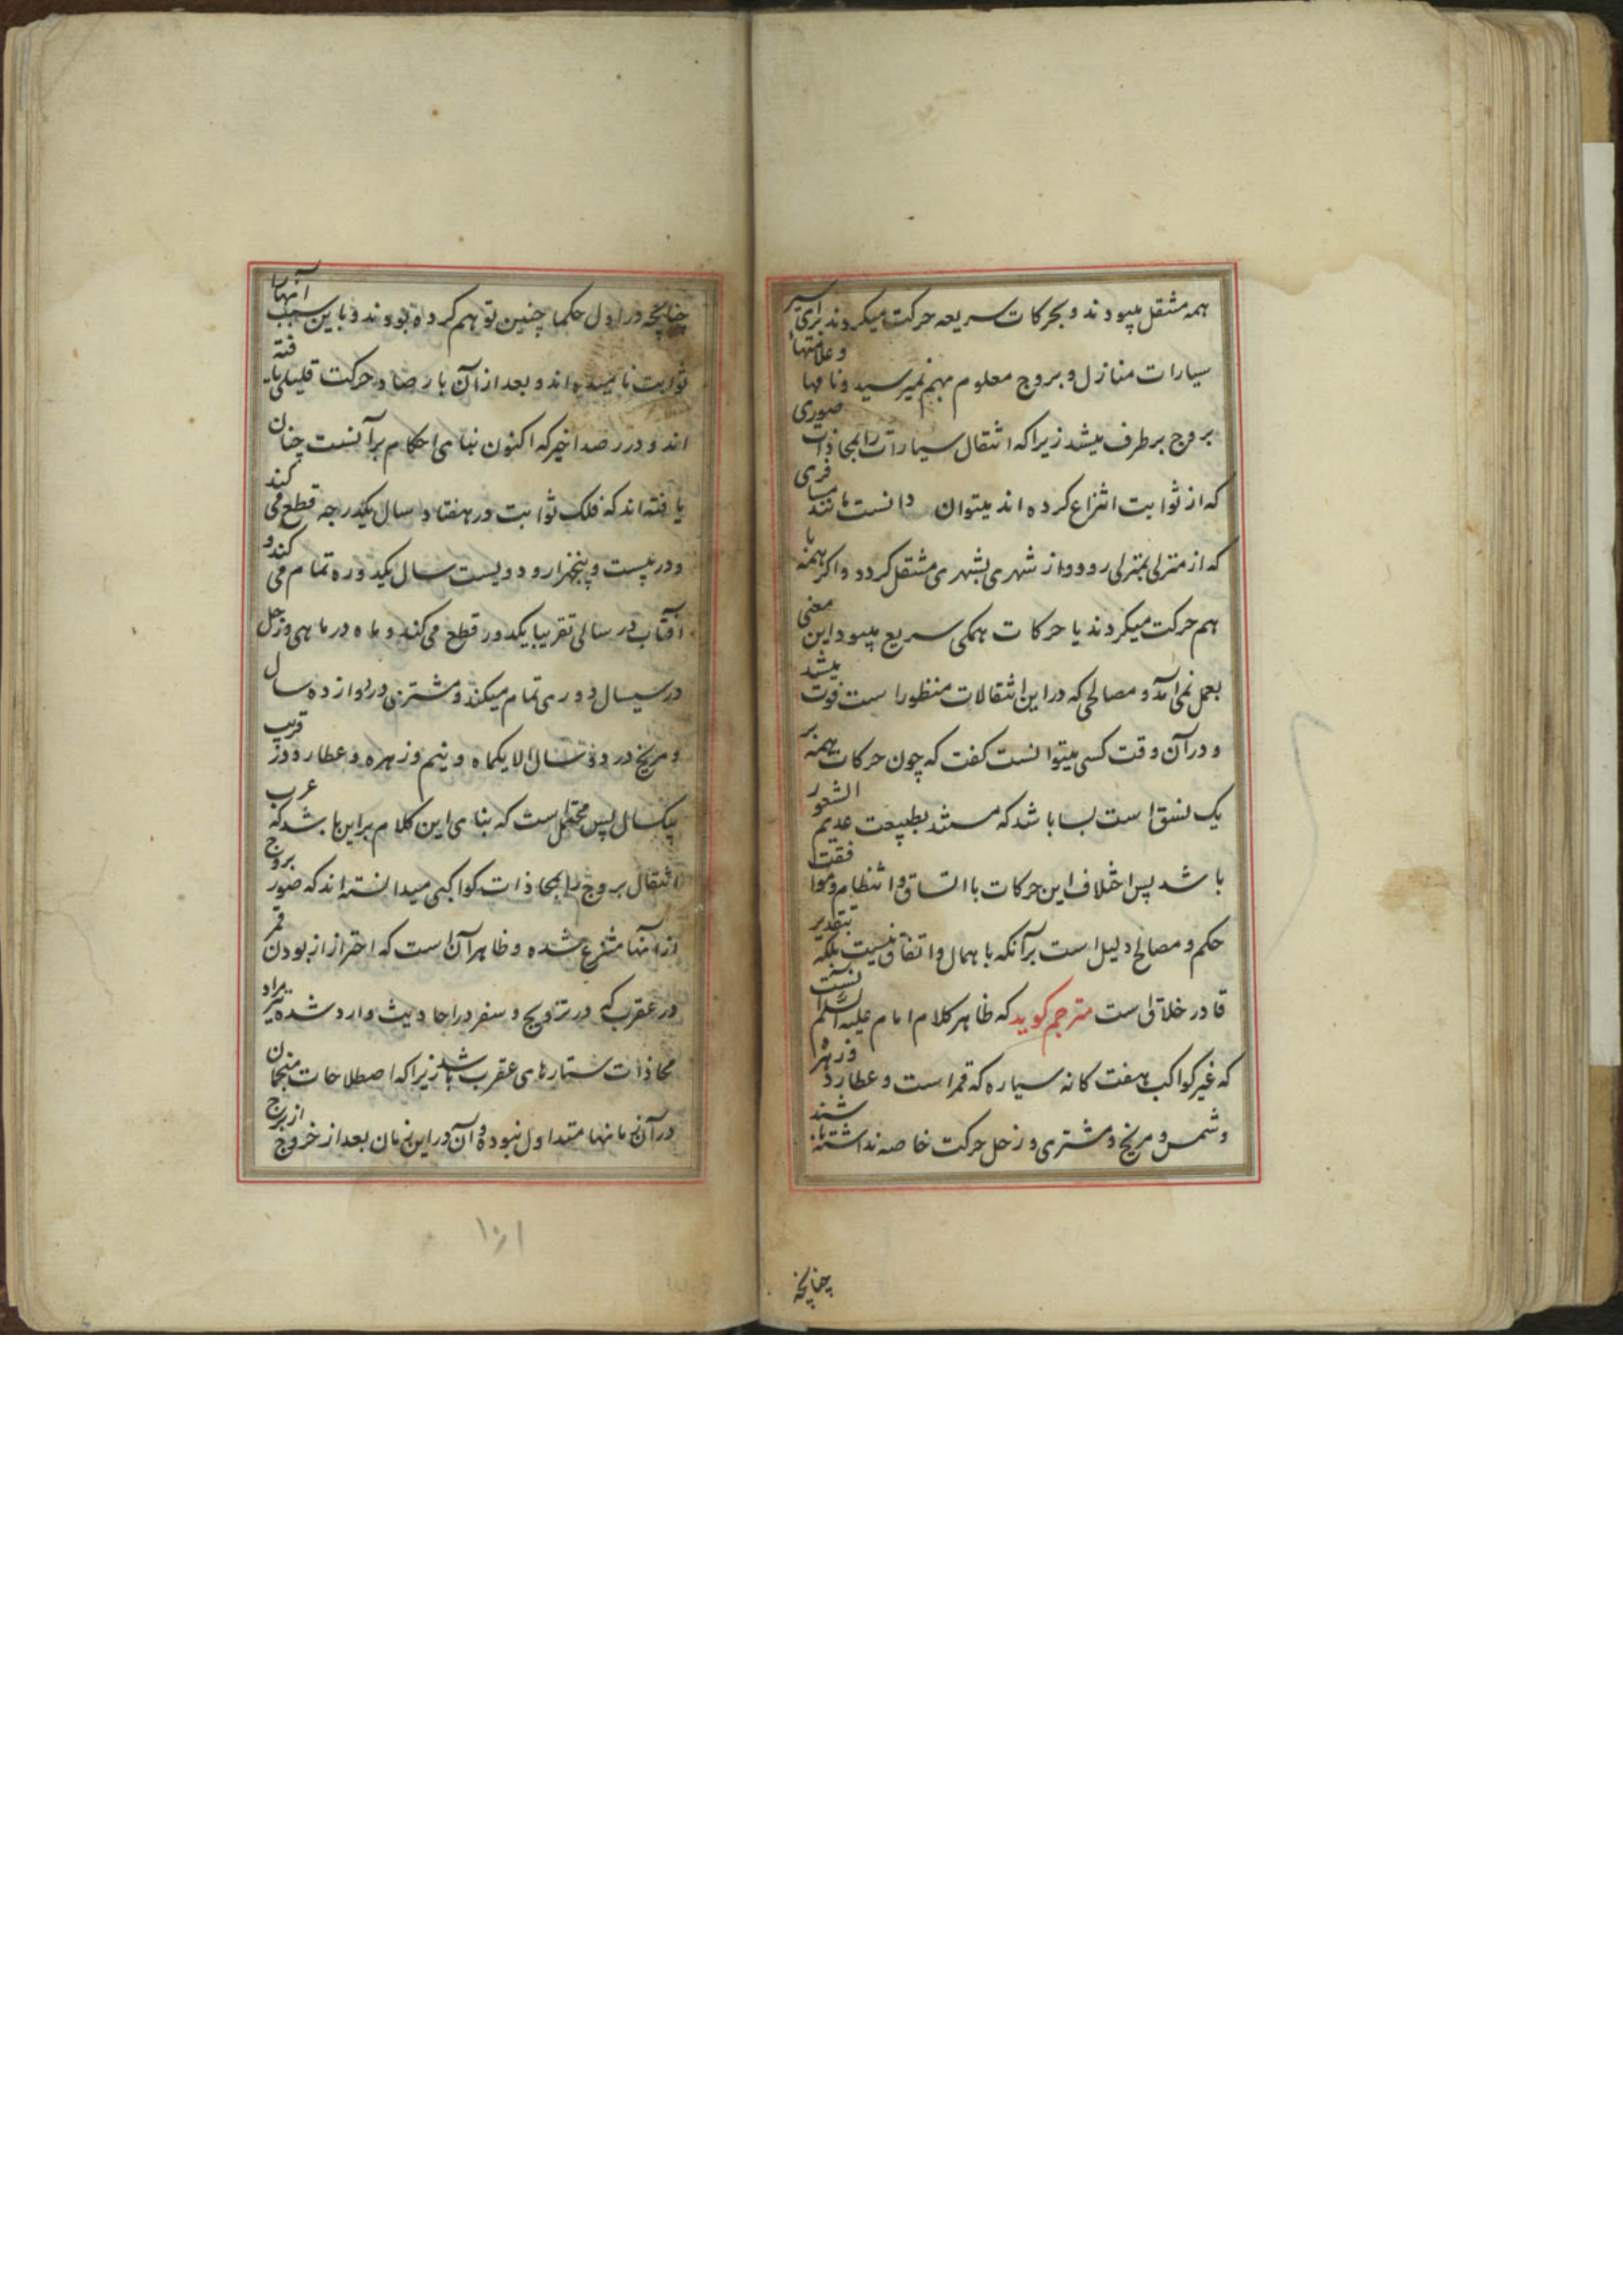 همه منتقل میبودند و بحرکات سریعه حرکت میکردند برای سیر
سیارات منازل و بروج معلوم بهم نمیرسید و نامها و علامتهاء
بروج برطرف میشد زیرا که انتقال سیارات را بمحاذات صوری
که از ثوابت انتزاع کرده اند میتوان دانست مانند مسافری
که از منزلی بمنزلی رود و از شهری بشهری منتقل کردد و اکر همه با
هم حرکت میکردند یا حرکات همکی سریع میبود این معنی
بعمل نمی آمد و مصالحی که در این انتقالات منظور است فوت میشد
و در آن وقت کسی میتوانست کفت که چون حرکات همه بر
یک نسق است بسا باشد که مستند بطبیعت عدیم الشعور
باشد پس اختلاف این حرکات با اتساق و انتظام و موافقت
حکم و مصالح دلیل است بر آنکه باهمال و اتفاق نیست بلکه بتقدیر
قادر خلاق است مترجم کوید که ظاهر کلام امام علیه السلم آنست
که غیر کواکب هفت کانه سیاره که قمر است و عطارد و زهره
و شمس و مریخ و مشتری و زحل حرکت خاصه نداشته باشند
چنانچه
چنانچه در اول حکما چنین توهم کرده بودند و باین سبب آنها را
ثوابت نامیده اند و بعد از آن بارصاد حرکت قلیلی یافته
اند و در رصد اخیر که اکنون بنای احکام بر آنست چنان
یافته اند که فلک ثوابت در هفتاد سال یکدرجه قطع می کند
و در بیست و پنجهزار و دویست سال یکدوره تمام می کند و
آفتاب در سالی تقریبا یکدور قطع می کند و ماه در ماهی و زحل
در سیسال دوری تمام میکند و مشتری در دوازده سال
و مریخ در دو سال الا یکماه و نیم و زهره و عطارد در قریب
بیکسال پس محتمل است که بنای این کلام بر این باشد که عرب
انتقال بروج را بمحاذات کواکبی میدانسته اند که صور بروج
از آنها منتزع شده و ظاهر آن است که احتراز از بودن قمر
در عقرب که در تزویج و سفر در احادیث وارد شده مراد
محاذات ستارهای عقرب باشد زیرا که اصطلاحات منجمان
در آن زمانها متداول نبوده و آن در این زمان بعد از خروج از برج
۱۰۱